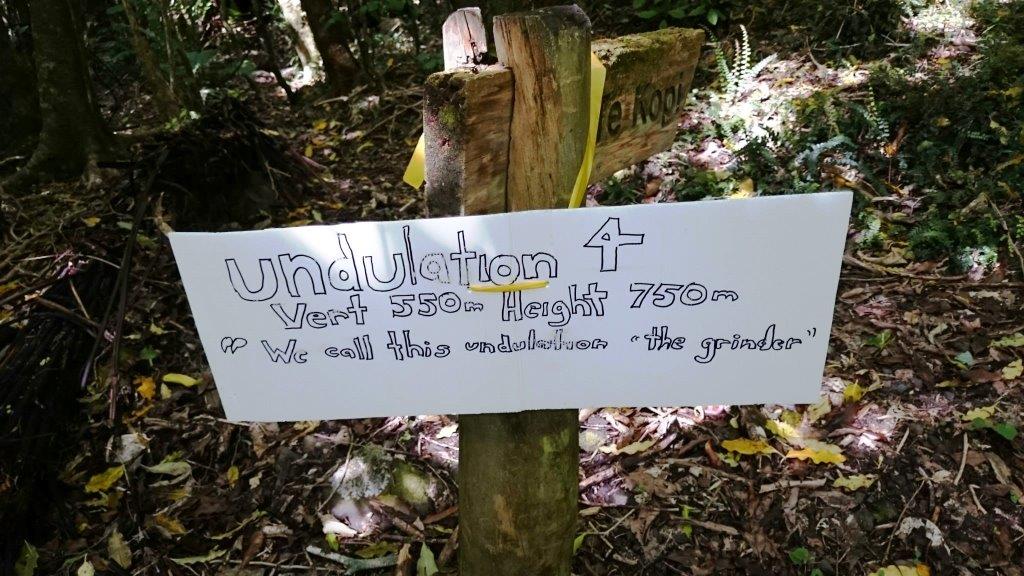 Te Kopi
undulation 4
Vert 550m Height 750m
" We call this undulation "the grinder"